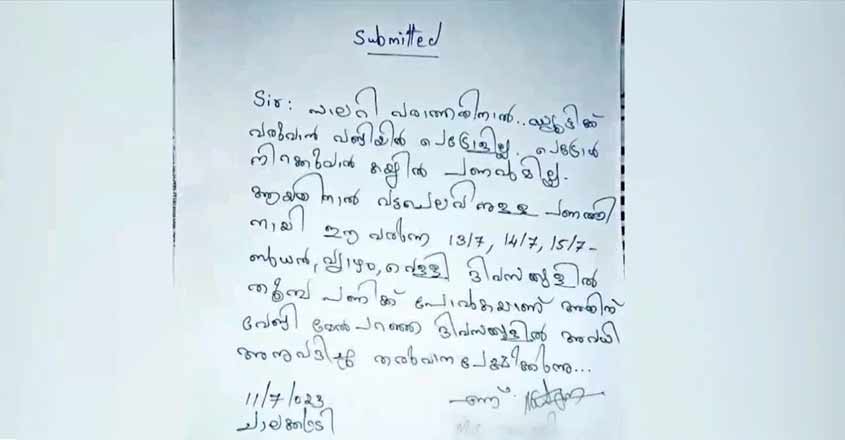 Submitted
Sir: സാലറി വരാത്തതിനാൽ.. ഡ്യൂട്ടിക്ക്
വരുവാൻ വണ്ടിയിൽ പെട്രോളില്ല. പെട്രോൾ
നിറക്കുവാൻ കയ്യിൽ പണവുമില്ല.
ആയതിനാൽ വട്ടചെലവിനുള്ള പണത്തി
നായി ഈ വരുന്ന 13/7, 14/7, 15/7-
ബുധൻ, വ്യാഴം, വെള്ളി ദിവസങ്ങളിൽ
തൂമ്പ പണിക്ക് പോവുകയാണ് അതിന്
വേണ്ടി മേൽപറഞ്ഞ ദിവസങ്ങളിൽ അവധി
അനുവദിച്ചു തരുവാനപേക്ഷിക്കുന്നു...
11/7/023 എന്ന്
ചാലക്കുടി